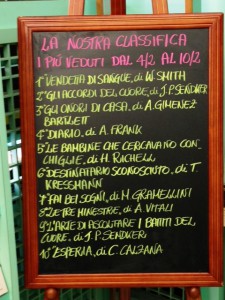 LA NOSTRA CLASSIFICA
I PIÙ VEDUTI DAL 4/2 AL 10/2
1° VENDETTA DI SANGUE, di W. SMITH
2° GLI ACCORDI DEL CUORE, di J.P. SENDKER
3° GLI ONORI DI CASA, di A. GIMENEZ
BARTLETT
4° DIARIO, di A. FRANK
5° LE BAMBINE CHE CERCAVANO CON-
CHIGLIE, di H. RICHELL
6° DESTINATARIO SCONOSCIUTO, di T.
KRESSMANN
7° FAI BEI SOGNI, di M. GRAMELLINI
8° LE TRE MINESTRE, di A. VITALI
9° L'ARTE DI ASCOLTARE I BATTITI DEL
CUORE, di J.P. SENDKER
10° ESPERIA, di C. CALZANA